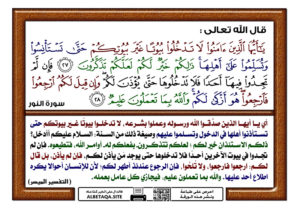 قال الله تعالى :
يَٰٓأَيُّهَا ٱلَّذِينَ ءَامَنُواْ لَا تَدْخُلُواْ بُيُوتًا غَيْرَ بُيُوتِكُمْ حَتَّىٰ تَسْتَأْنِسُواْ
وَتُسَلِّمُواْ عَلَىٰٓ أَهْلِهَاۚ ذَٰلِكُمْ خَيْرٌ لَّكُمْ لَعَلَّكُمْ تَذَكَّرُونَ ٢٧ فَإِن لَّمْ
تَجِدُواْ فِيهَآ أَحَدًا فَلَا تَدْخُلُوهَا حَتَّىٰ يُؤْذَنَ لَكُمْۖ وَإِن قِيلَ لَكُمُ ٱرْجِعُواْ
فَٱرْجِعُواْۖ هُوَ أَزْكَىٰ لَكُمْۚ وَٱللَّهُ بِمَا تَعْمَلُونَ عَلِيمٌ ٢٨ سورة النور
يا أيها الذين صدقوا الله ورسوله وعملوا بشرعه، لا تدخلوا بيوتًا غير بيوتكم حتى
تستأذنوا أهلها في الدخول وتسلموا عليهم وصيغة ذلك من السنة: السلام عليكم أأدخل؟
ذلكم الاستئذان خير لكم؛ لعلكم تتذكرون بفعلكم له أوامر الله، فتطيعوه. فإن لم
تجدوا في بيوت الآخرين أحدًا فلا تدخلوها حتى يوجد من يأذن لكم، فإن لم يأذن، بل قال
لكم: ارجعوا فارجعوا، ولا تلحوا، فإن الرجوع عندئذ أطهر لكم؛ لأن للإنسان أحوالا يكره
اطلاع أحد عليها. والله بما تعملون عليم، فيجازي كل عامل بعمله.
(التفسير الميسر)
ALBETAQA.SITE